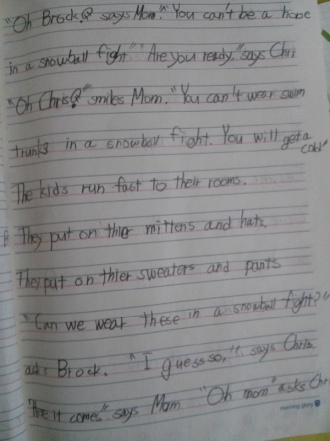 "Oh Brock? says Mom." You can't be a hope
in a snowball fight" "Are you ready," says Chri
"Oh Chris?" smiles Mom. "You can't wear swim
trunks in a snowball fight. You will get a
cold"
The kids run fast to their rooms.
They put on thier mittens and hats.
They put on thier sweaters and pants
"Can we wear these in a snowball fight?"
asks Brock. "I guess so,", says Chris.
it come." says Mom "Oh mom" asks Chr
morning glory